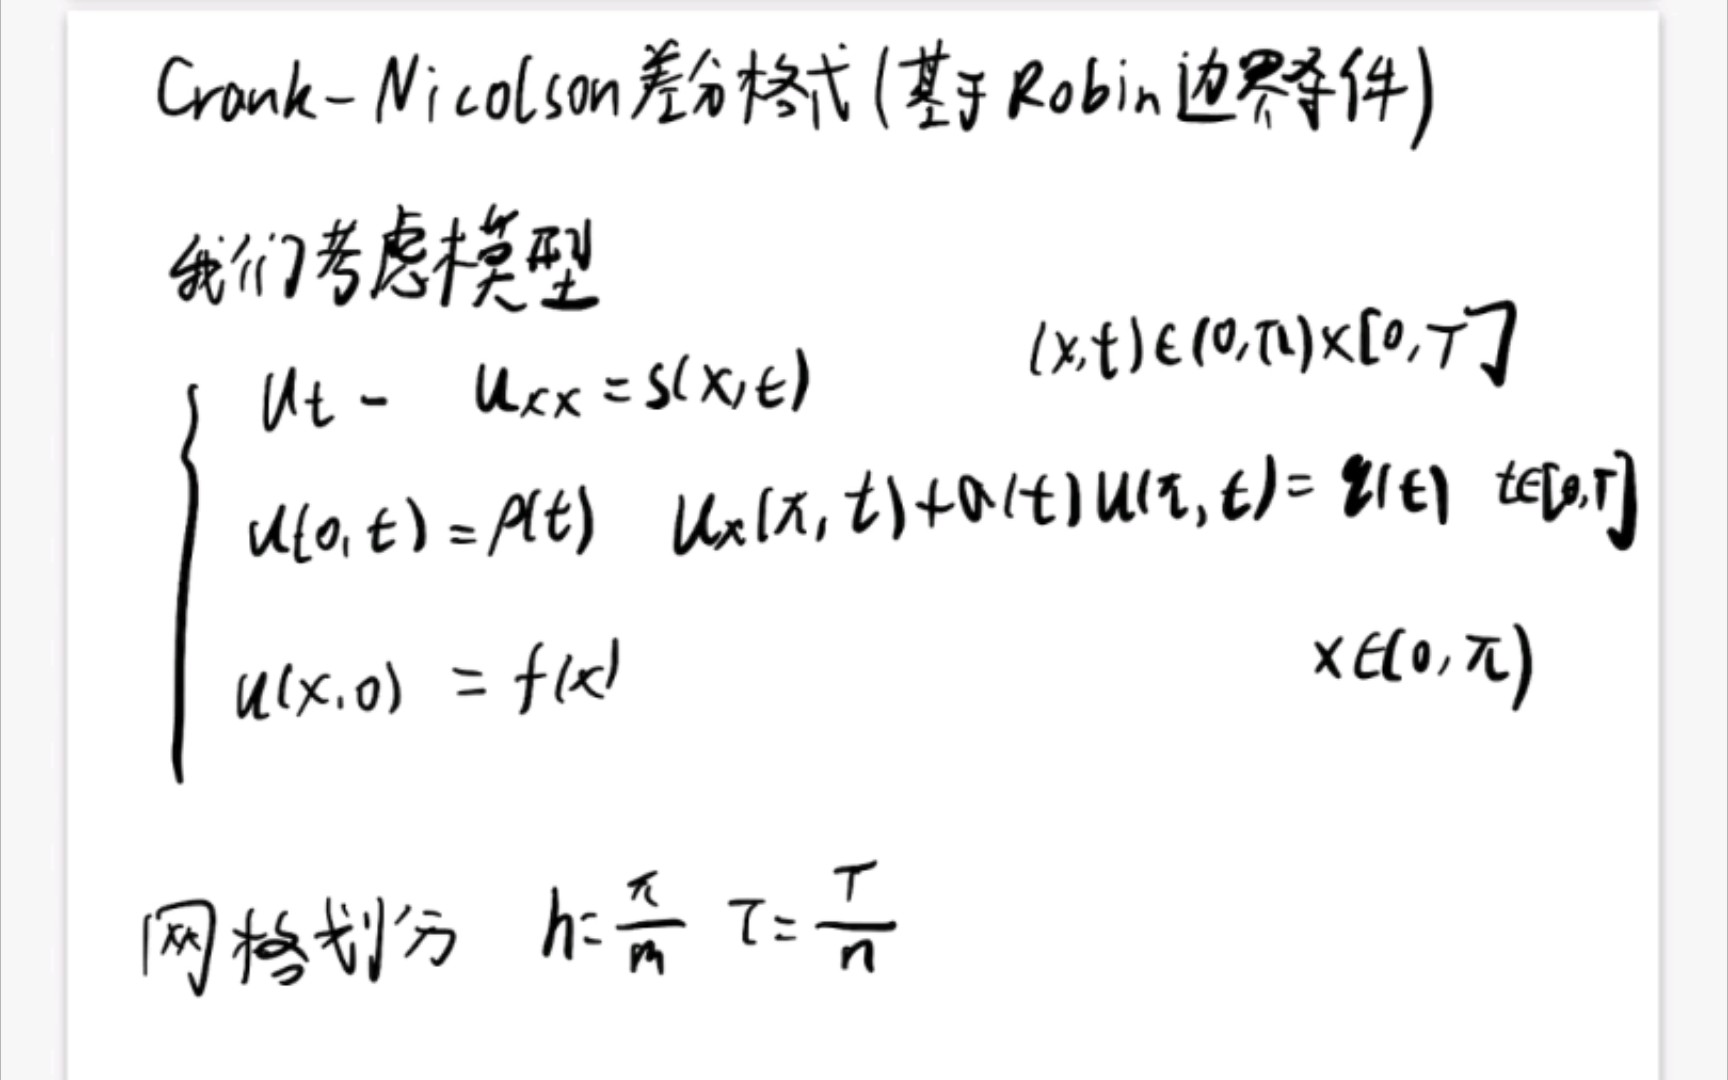 Crank-Nicolson差分格式(基于Robin边界条件)
我们考虑模型
u_t - u_xx = s(x,t) (x,t)∈(0,π)×[0,T]
u(0,t) = p(t) u_x(π,t)+a(t)u(π,t) = q(t) t∈[0,T]
u(x,0) = f(x) x∈(0,π)
网格划分 h=π/m τ=T/n